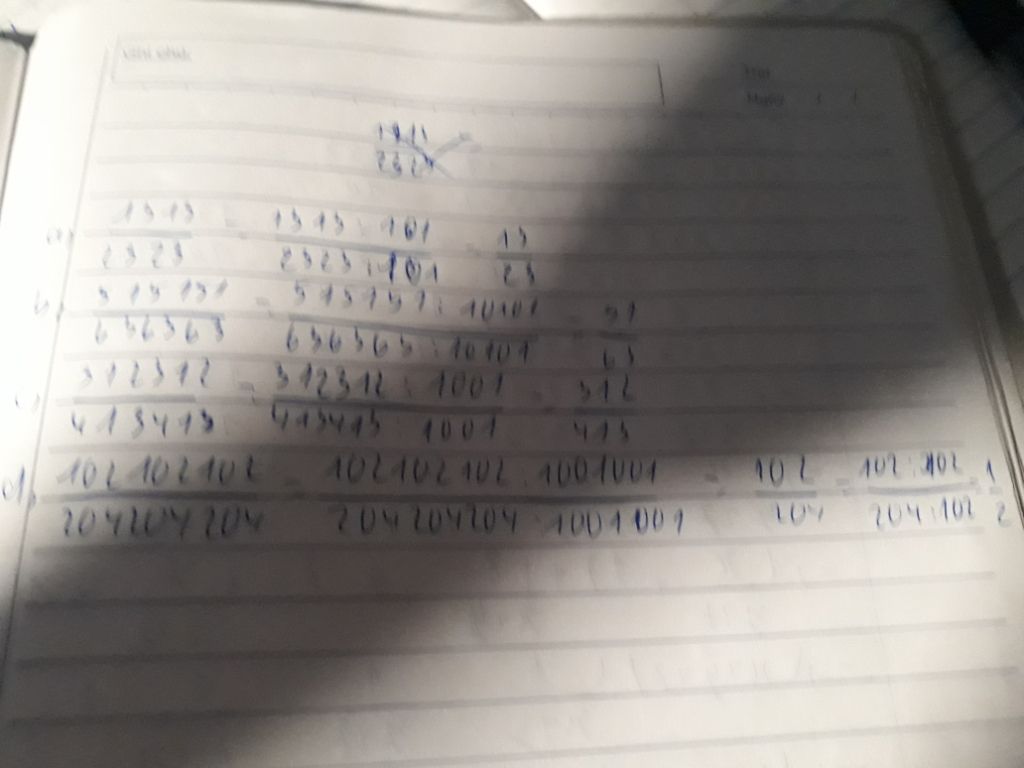 Ghi chú:
Ngày / /
a, 1313/2323 = 1313 : 101/2323 : 101 = 13/23
b, 313131/636363 = 313131 : 10101/636363 : 10101 = 31/63
c, 312312/413413 = 312312 : 1001/413413 : 1001 = 312/413
d, 102102102/204204204 = 102102102 : 1001001/204204204 : 1001001 = 102/204 = 102 : 102/204 : 102 = 1/2